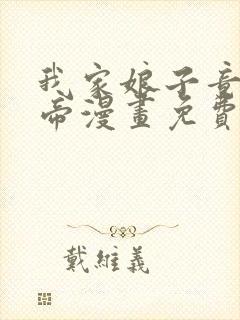 我家娘子竟
帝漫畫免費
戴維義